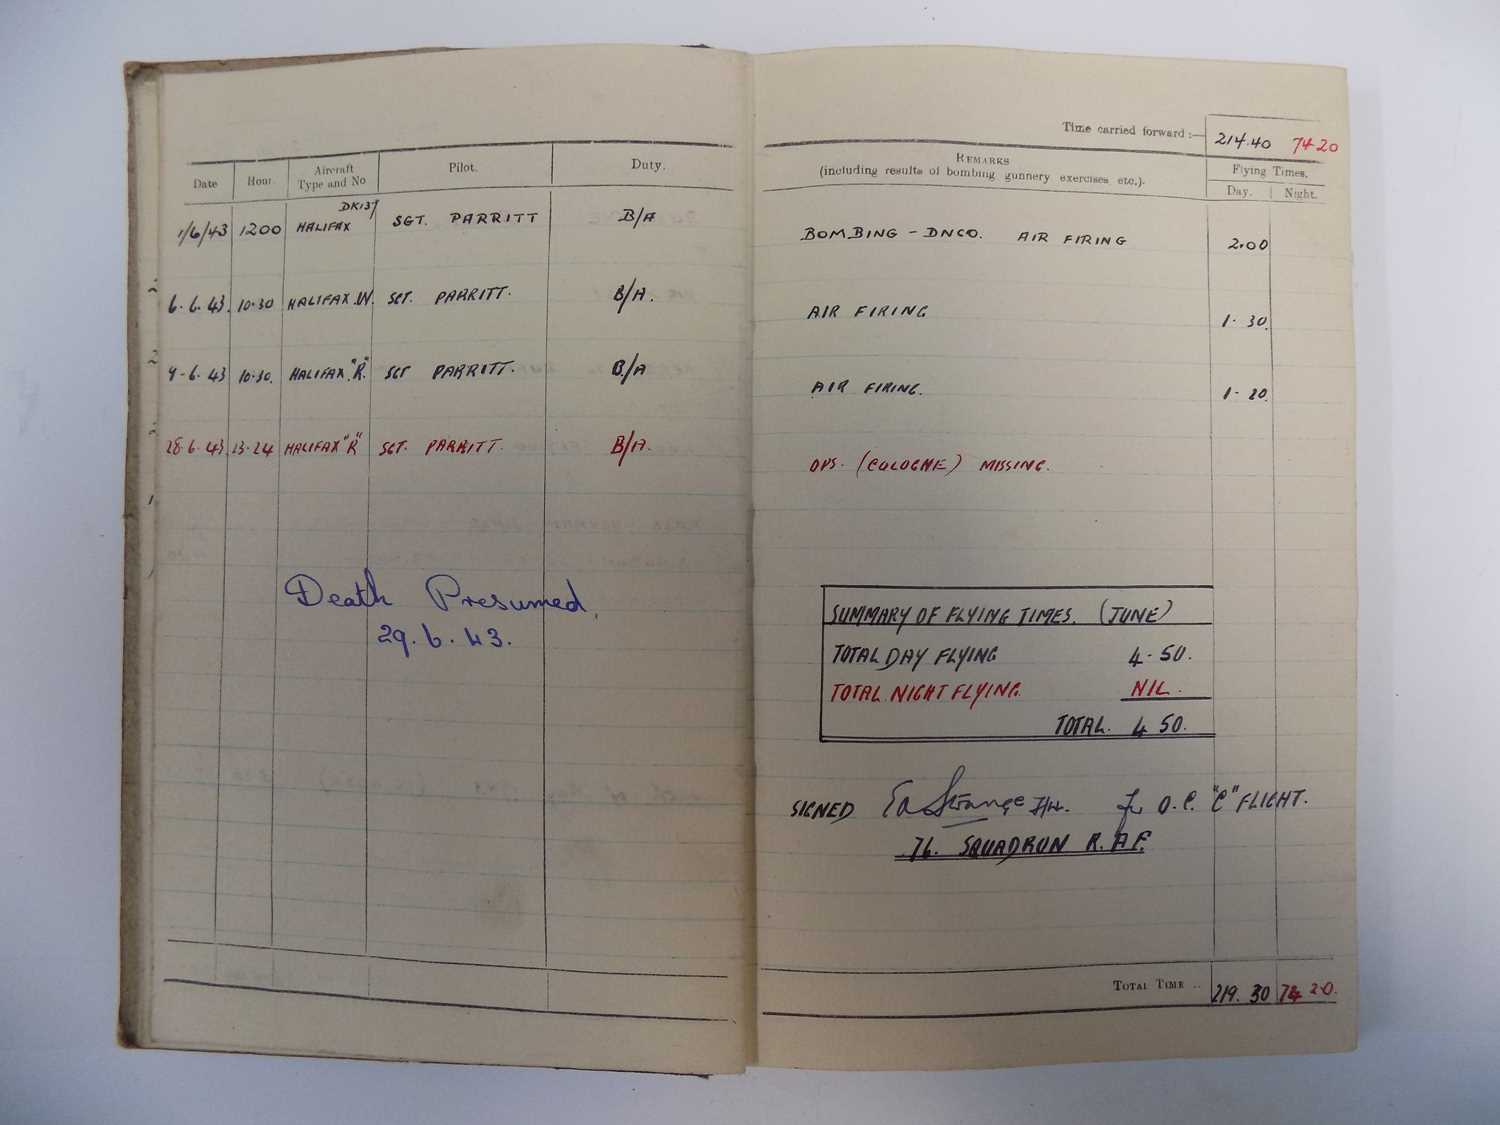 Date Hour. Aircraft Type and No Pilot. Duty.
1/6/43 1200 HALIFAX DK137 SGT. PARRITT B/A
6.6.43. 10.30 HALIFAX.W. SGT. PARRITT. B/A.
9-6.43 10.30. HALIFAX."R." SGT PARRITT. B/A
28.6.43. 23.24 HALIFAX "R" SGT. PARRITT. B/A.
Death Presumed.
29.6.43.
Time carried forward :— 214.40 74 20
REMARKS
(including results of bombing gunnery exercises etc.).
Flying Times.
Day. Night.
BOMBING – DNCO. AIR FIRING 2.00
AIR FIRING 1. 30.
AIR FIRING. 1- 20.
OPS. (COLOGNE) MISSING.
SUMMARY OF FLYING TIMES. (JUNE)
TOTAL DAY FLYING 4.50.
TOTAL NIGHT FLYING. NIL.
TOTAL. 4 50.
SIGNED F/Lt. for O.C. "C" FLIGHT.
76. SQUADRON R.A.F.
TOTAL TIME .. 219. 30 74 20.